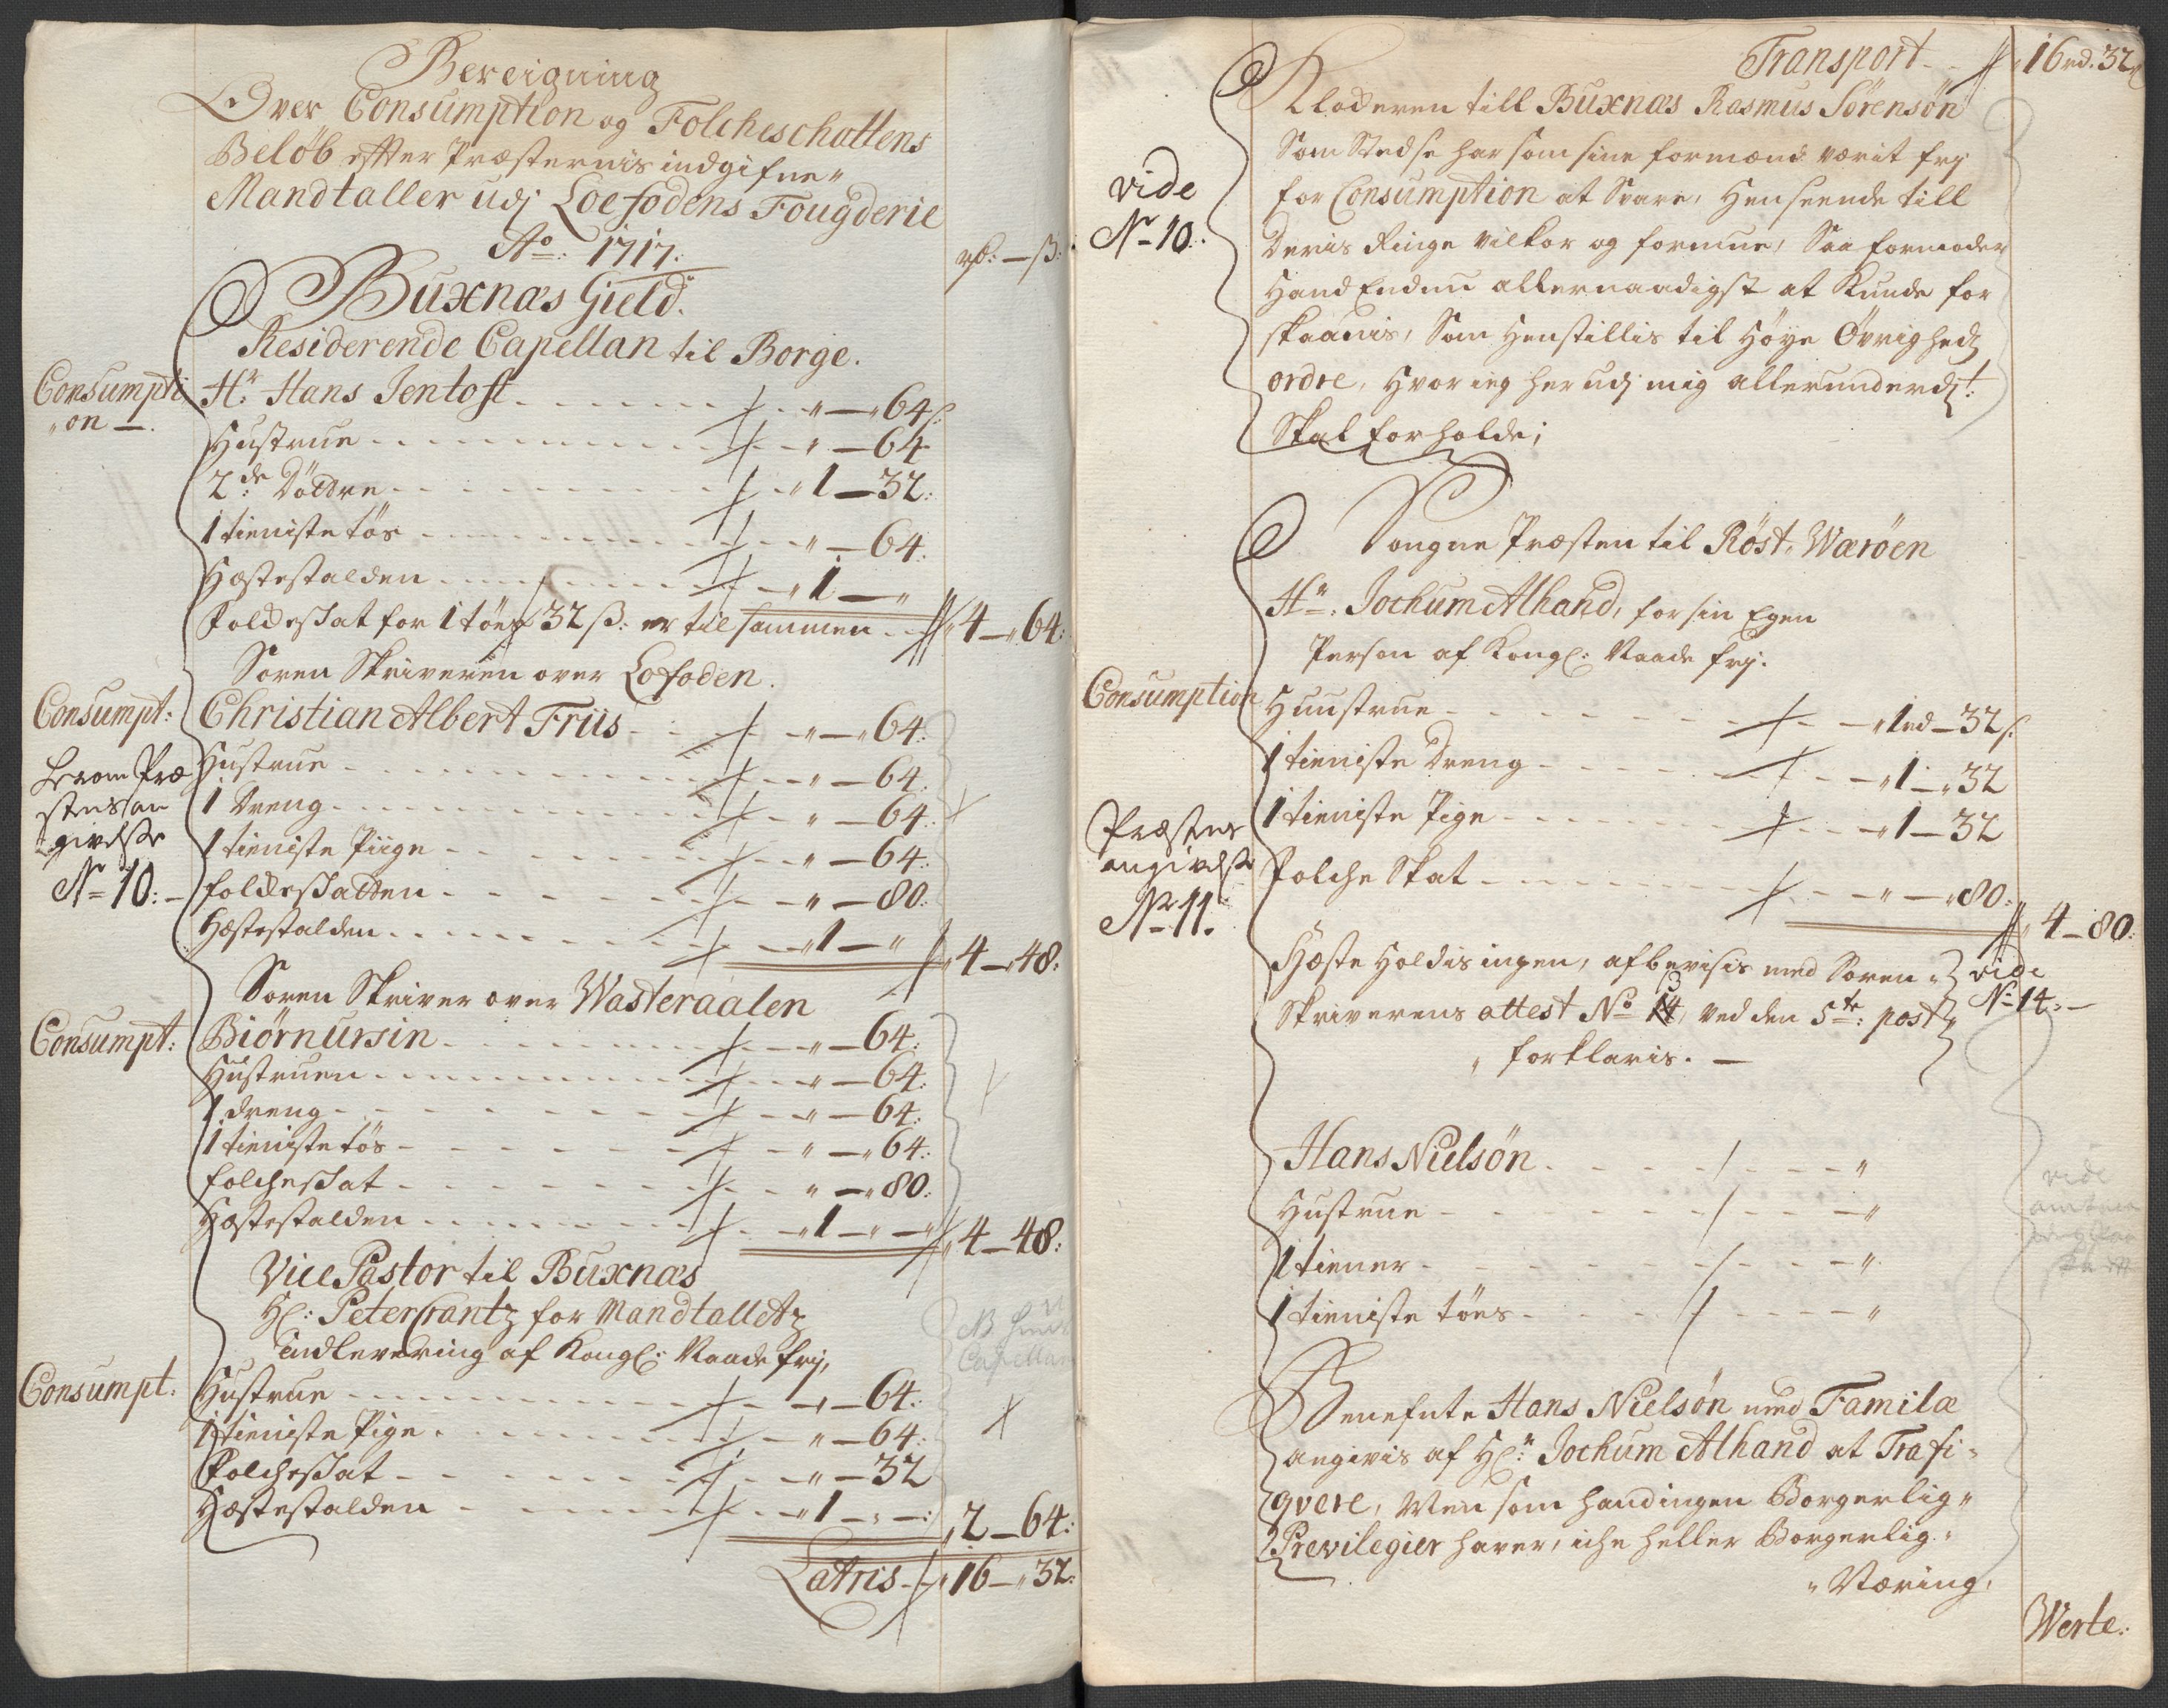 Bereigning
Over Consumption og Folcheschattens
Beløb efter Præsternis indgifne
Mandtaller udj Loefodens Fougderie
Ao: 1717:
rd: — ß:
Buxnæs Gield.
Residerende Capellan til Borge.
Consumpti
on —.
Hr. Hans Jentoft - - - " — " 64 ß
Hustrue - - - " — 64
2de Døttre - - - " 1 — 32:
1 tieniste tøs - - - " — 64:
Hæstestalden - - - " 1 — "
Folckeskat for 1 tøes 32 ß: er til sammen - - 4 — " 64:
Soren Skriveren over Lofoden.
Consumpt: Christian Albert Friis - - - " — " 64:
Hustrue - - - " — 64:
1 Dreng - - - " — 64:
1 tieniste Piige - - - " — 64:
folckeskatten - - - " — 80:
Hæstestalden - - - " 1 — " 4 — " 48:
Præ
stens an
givelse
No 10: —
Soren Skriver over Wasteraalen
Consumpt: Biörn ursin - - - " — 64:
Hustruen - - - " — 64:
1 dreng - - - " — 64:
1 tieniste tøs - - - " — " 64:
folcheskat - - - " — " 80:
Hæstestalden - - - " 1 — " — " 4 — 48:
Vice Pastor til Buxnæs
Hr: Peter Crantz for Mandtalletz
indlevering af Kongl: Naade frj,
NB
Capellan
Consumpt: Hustrue - - - " — 64:
1 tieniste Pige - - - " — 64:
Folcheskat - - - " — 32
Hæstestalden - - - " 1 — " — : 2 — 64:
Latris - - " 16 — " 32:
Transport - - " 16 rd. 32 ß
Klockeren till Buxnæs Rasmus Sörensön
Som Stedse har som sine formænd værit frj
for Consumption at Svare, Henseende till
Deris Ringe Vilkor og formue, Saa formoder
Hand Endnu allernaadigst at Kunde for
skaanis, Som Henstillis til Høye Øvrighedz
ordre, Hvor ieg her udj mig allerunderd:t
Skal forholde;
vide
No 10:
Sougne Præsten til Röst, Wæröen
Hr: Jochum Alhand, for sin Egen
Person af Kongl: Naade frj.
Consumption Huustrue - - - " 1 rd — 32 ß
1 tieniste Dreng - - - " 1 — " 32
1 tieniste Pige - - - " 1 — 32
Folche Skat - - - " — " 80:
4 — 80:
Præstens
angivelse
No 11.
Hæste Holdis ingen, afbevisis med Soren
Skriverens attest No 14, ved den 5te: post
forklaris. —
vide
No 14: —
Hans Nielsön - - - "
Hustrue - - - "
1 tiener - - - "
1 tieniste tøes - - - "
vide
Benefnte Hans Nielsön med Familæ
angivis af Hr: Jochum Alhand at Trafi-
qvere, Men som hand ingen Borgerlig
Previlegier haver, iche heller Borgerlig
" Næring,
Werte: